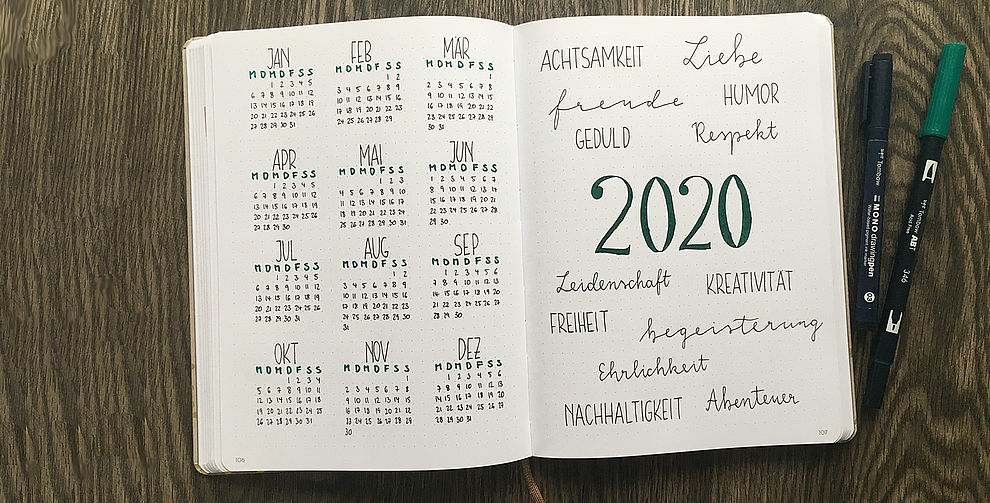 JAN
M D M D F S S
1 2 3 4 5
6 7 8 9 10 11 12
13 14 15 16 17 18 19
20 21 22 23 24 25 26
27 28 29 30 31
FEB
M D M D F S S
1 2
3 4 5 6 7 8 9
10 11 12 13 14 15 16
17 18 19 20 21 22 23
24 25 26 27 28 29
MÄR
M D M D F S S
1
2 3 4 5 6 7 8
9 10 11 12 13 14 15
16 17 18 19 20 21 22
23 24 25 26 27 28 29
30 31
APR
M D M D F S S
1 2 3 4 5
6 7 8 9 10 11 12
13 14 15 16 17 18 19
20 21 22 23 24 25 26
27 28 29 30
MAI
M D M D F S S
1 2 3
4 5 6 7 8 9 10
11 12 13 14 15 16 17
18 19 20 21 22 23 24
25 26 27 28 29 30 31
JUN
M D M D F S S
1 2 3 4 5 6 7
8 9 10 11 12 13 14
15 16 17 18 19 20 21
22 23 24 25 26 27 28
29 30
JUL
M D M D F S S
1 2 3 4 5
6 7 8 9 10 11 12
13 14 15 16 17 18 19
20 21 22 23 24 25 26
27 28 29 30 31
AUG
M D M D F S S
1 2
3 4 5 6 7 8 9
10 11 12 13 14 15 16
17 18 19 20 21 22 23
24 25 26 27 28 29 30
31
SEP
M D M D F S S
1 2 3 4 5 6
7 8 9 10 11 12 13
14 15 16 17 18 19 20
21 22 23 24 25 26 27
28 29 30
OKT
M D M D F S S
1 2 3 4
5 6 7 8 9 10 11
12 13 14 15 16 17 18
19 20 21 22 23 24 25
26 27 28 29 30 31
NOV
M D M D F S S
1
2 3 4 5 6 7 8
9 10 11 12 13 14 15
16 17 18 19 20 21 22
23 24 25 26 27 28 29
30
DEZ
M D M D F S S
1 2 3 4 5 6
7 8 9 10 11 12 13
14 15 16 17 18 19 20
21 22 23 24 25 26 27
28 29 30 31
106
ACHTSAMKEIT Liebe
freude HUMOR
GEDULD Respekt
2020
Leidenschaft KREATIVITÄT
FREIHEIT begeisterung
Ehrlichkeit
NACHHALTIGKEIT Abenteuer
107
Tombow MONO drawing pen
Tombow ABT
346